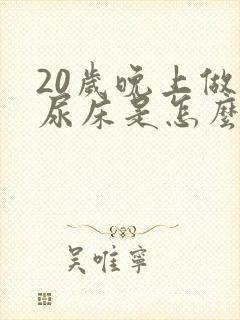 20歲晚上做
尿床是怎麼
吴唯寧